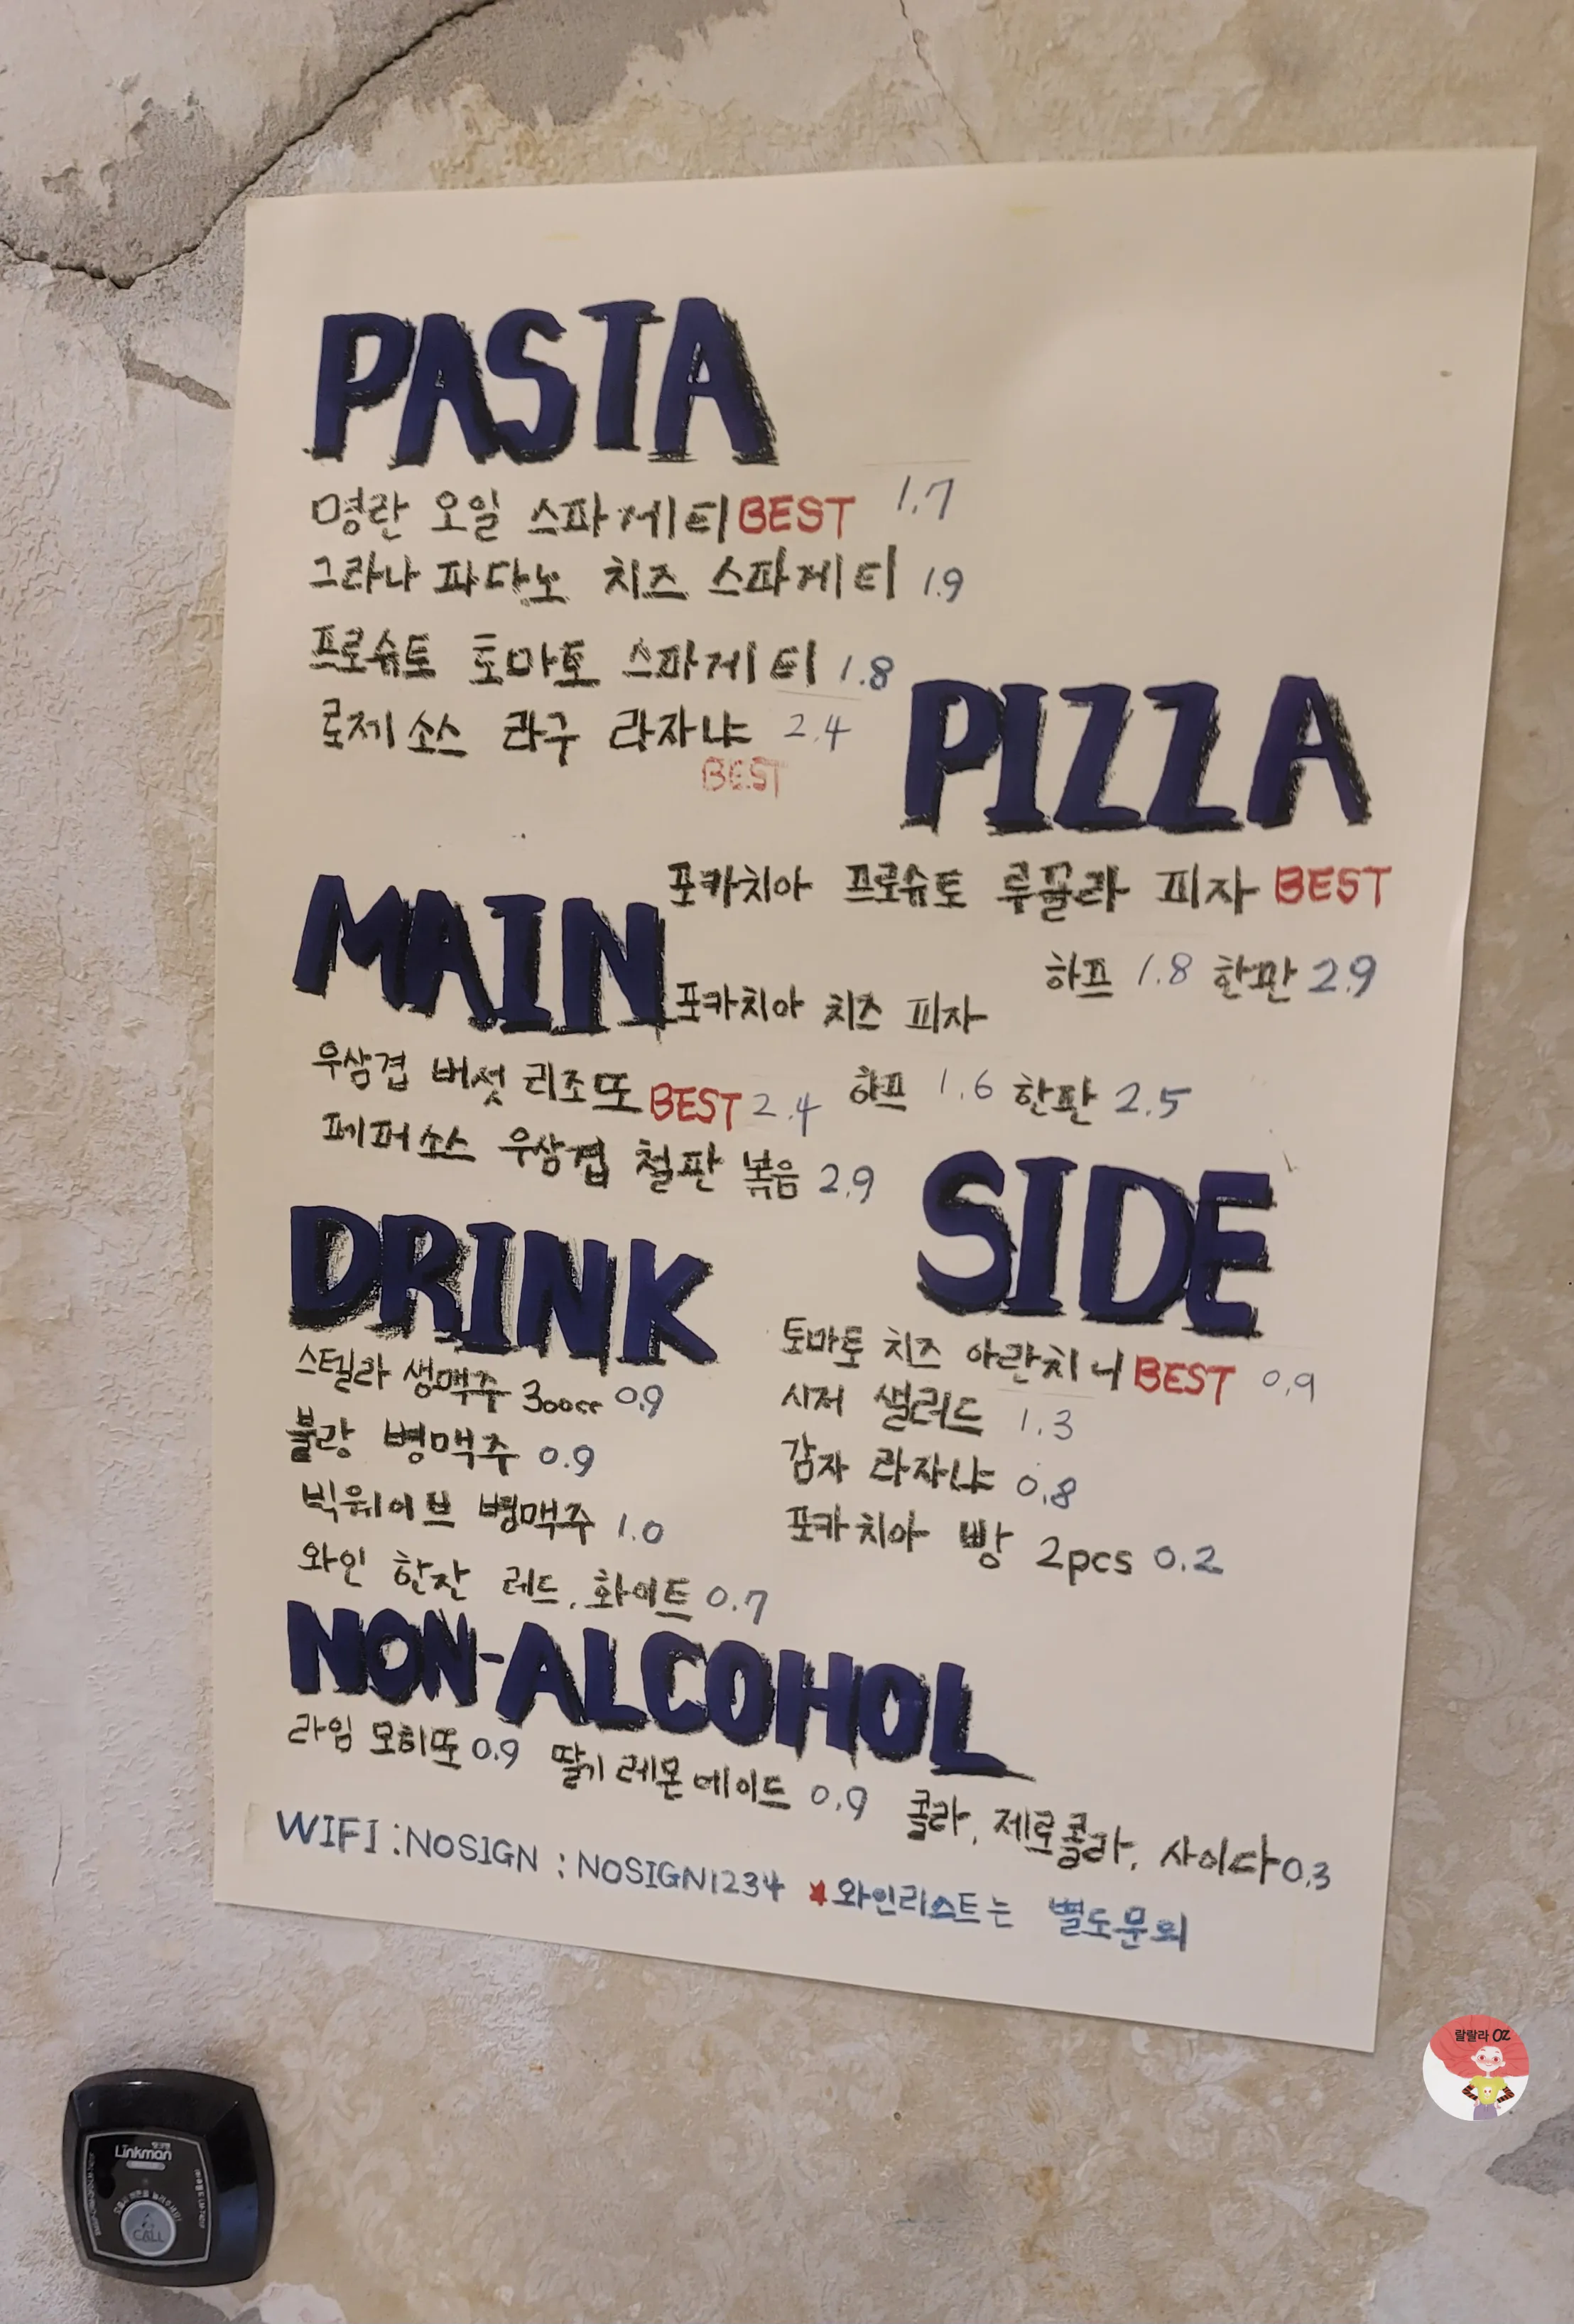 PASTA
명란 오일 스파게티 BEST 1.7
그라나 파다노 치즈 스파게티 1.9
프로슈토 토마토 스파게티 1.8
로제소스 라구 라자냐 2.4
BEST
PIZZA
포카치아 프로슈토 루꼴라 피자 BEST
하프 1.8 한판 2.9
포카치아 치즈 피자
하프 1.6 한판 2.5
MAIN
우삼겹 버섯 리조또 BEST 2.4
페퍼소스 우삼겹 철판 볶음 2.9
SIDE
토마토 치즈 아란치니 BEST 0.9
시저 샐러드 1.3
감자 라자냐 0.8
포카치아 빵 2pcs 0.2
DRINK
스텔라 생맥주 300cc 0.9
블랑 병맥주 0.9
빅웨이브 병맥주 1.0
와인 한잔 레드, 화이트 0.7
NON-ALCOHOL
라임 모히또 0.9 딸기 레몬에이드 0.9 콜라, 제로콜라, 사이다 0.3
WIFI : NOSIGN : NOSIGN1234 ★와인리스트는 별도문의
Linkman
CALL
랄랄라 OZ